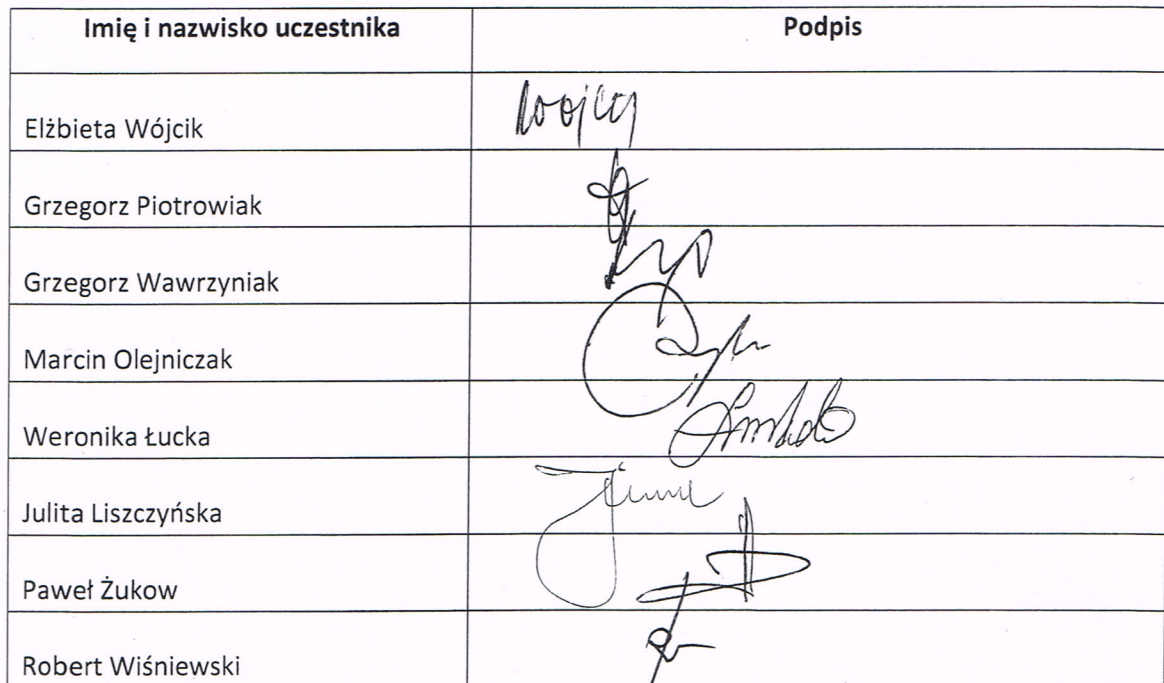 Imię i nazwisko uczestnika Podpis
Elżbieta Wójcik
Grzegorz Piotrowiak
Grzegorz Wawrzyniak
Marcin Olejniczak
Weronika Łucka
Julita Liszczyńska
Paweł Żukow
Robert Wiśniewski